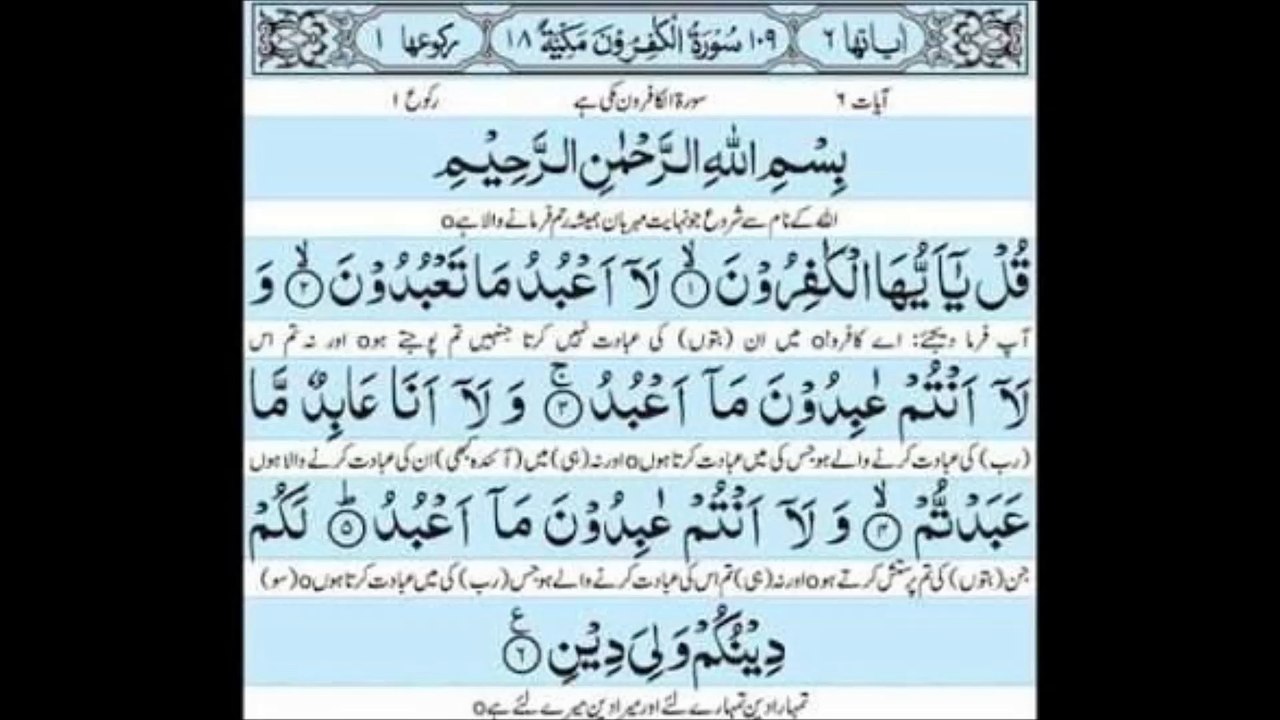 اٰیاتها ٦ ١٠٩ سُوْرَةُ الْكٰفِرُوْنَ مَكِّیَّةٌ ١٨ ركوعها ١
آیات ۶ سورۃ الکافرون مکی ہے رکوع ۱
بِسْمِ اللّٰهِ الرَّحْمٰنِ الرَّحِیْمِ
اللہ کے نام سے شروع جو نہایت مہربان ہمیشہ رحم فرمانے والا ہے o
قُلْ یٰۤاَیُّهَا الْكٰفِرُوْنَۙ ۝١ لَاۤ اَعْبُدُ مَا تَعْبُدُوْنَۙ ۝٢ وَ
آپ فرما دیجئے: اے کافرو! o میں ان (بتوں) کی عبادت نہیں کرتا جنہیں تم پوجتے ہو o اور نہ تم اس
لَاۤ اَنْتُمْ عٰبِدُوْنَ مَاۤ اَعْبُدُۚ ۝٣ وَ لَاۤ اَنَا عَابِدٌ مَّا
(رب) کی عبادت کرنے والے ہو جس کی میں عبادت کرتا ہوں o اور نہ (ہی) میں (آئندہ کبھی) ان کی عبادت کرنے والا ہوں
عَبَدْتُّمْۙ ۝٤ وَ لَاۤ اَنْتُمْ عٰبِدُوْنَ مَاۤ اَعْبُدُؕ ۝٥ لَكُمْ
جن (بتوں) کی تم پرستش کرتے ہو o اور نہ (ہی) تم اس کی عبادت کرنے والے ہو جس (رب) کی میں عبادت کرتا ہوں o (سو)
دِیْنُكُمْ وَلِیَ دِیْنِ ۝٦ ع
تمہارا دین تمہارے لئے اور میرا دین میرے لئے ہے o